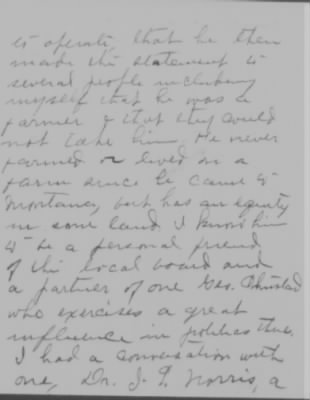 to operate, that he then
made the statement to
several people including
myself that he was a
farmer & that they could
not take him. He never
farmed or lived on a
farm since he came to
Montana, but has an equity
in some land. I know him
to be a personal friend
of the local board and
a partner of one Geo.
who exercises a great
influence in politics there.
I had a conversation with
one, Dr. J. P. Norris, a